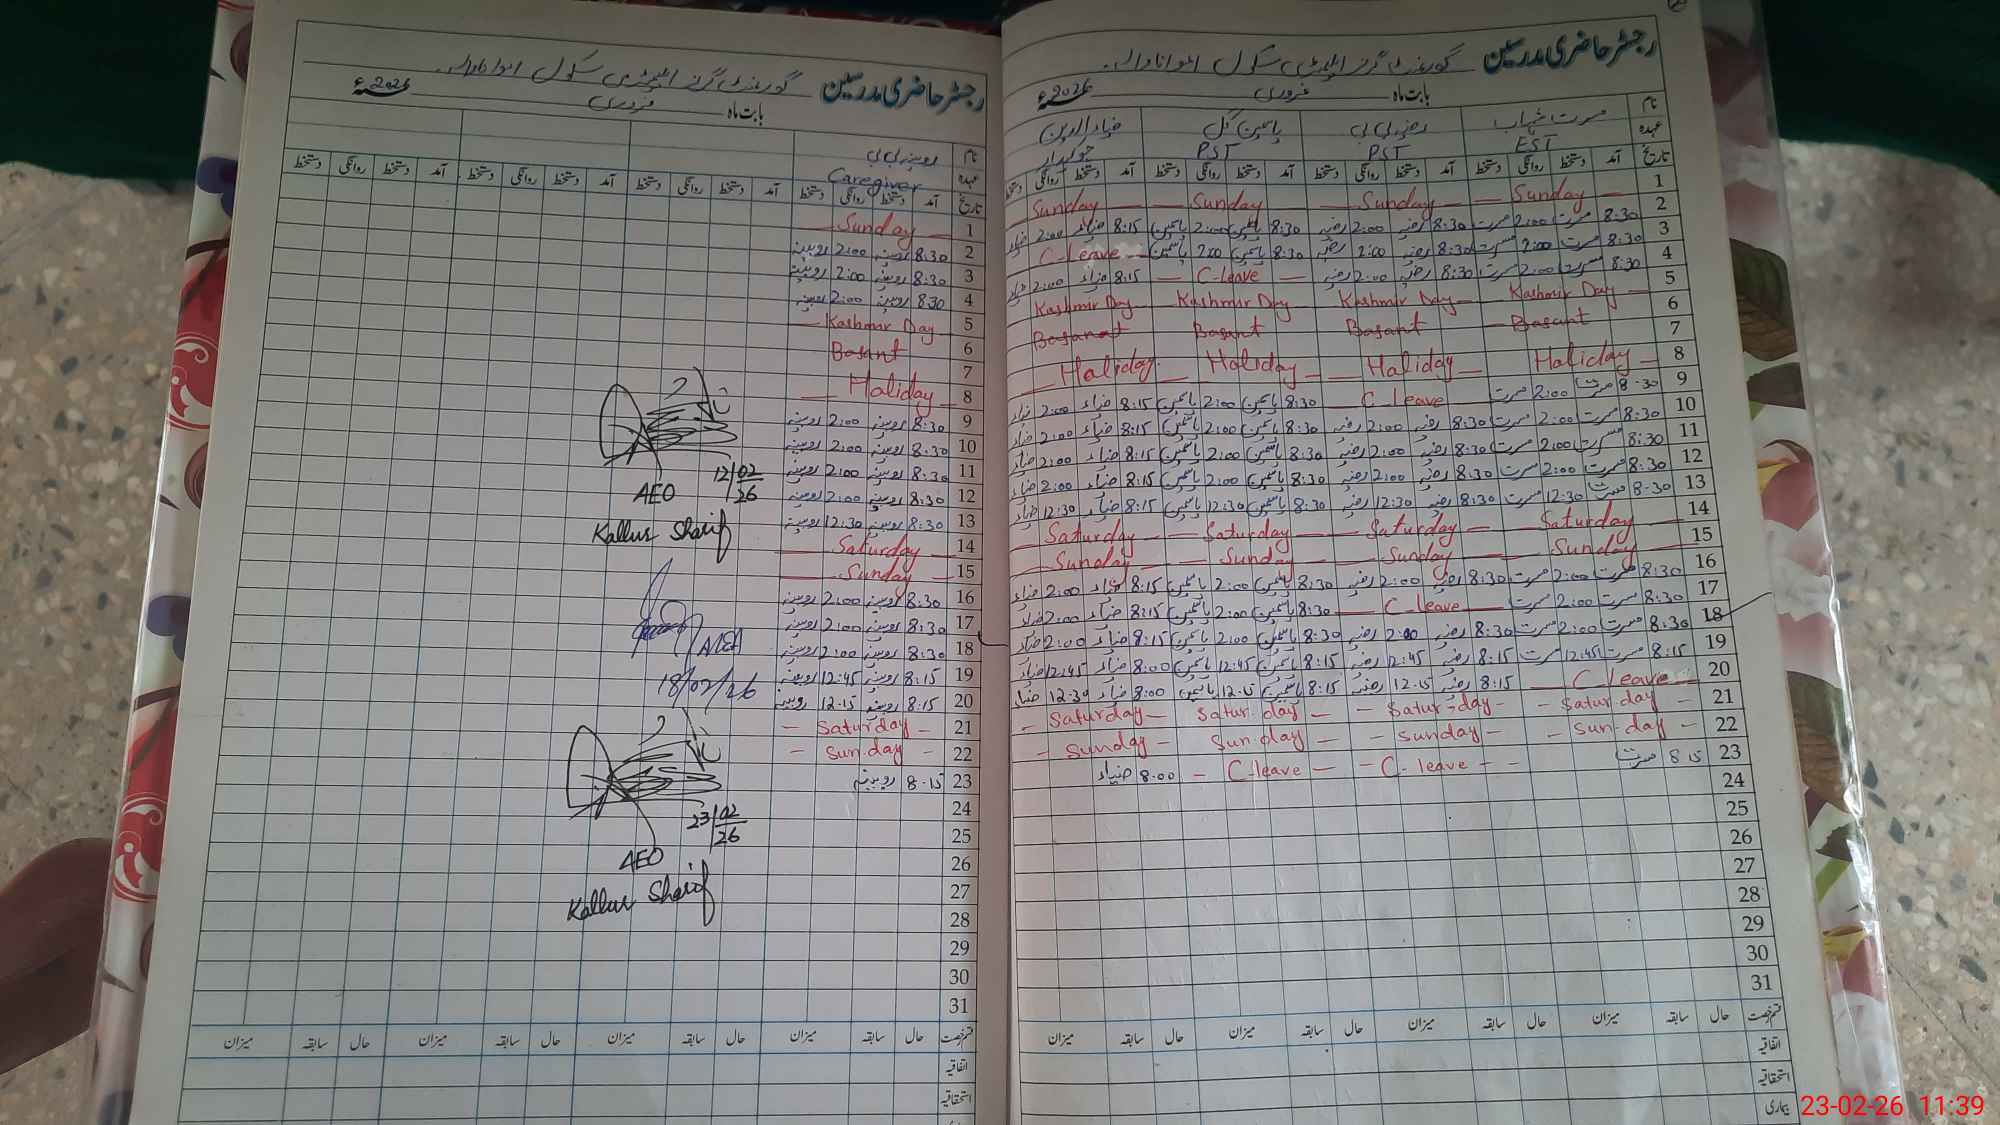 رجسٹر حاضری مدرسین گورنمنٹ گرلز ایلیمنٹری سکول
بابت ماہ فروری 2026ء
نام مسرت شہاب رضیہ بی بی یاسمین گل ضیاء الدین
عہدہ EST PST PST چوکیدار
تاریخ آمد دستخط روانگی دستخط آمد دستخط روانگی دستخط آمد دستخط روانگی دستخط آمد دستخط روانگی دستخط
1 Sunday — Sunday — Sunday — Sunday
2 8:30 مسرت 2:00 مسرت 8:30 رضیہ 2:00 رضیہ 8:30 یاسمین 2:00 یاسمین 8:15 ضیاء 2:00 ضیاء
3 8:30 مسرت 2:00 مسرت 8:30 رضیہ 2:00 رضیہ 8:30 یاسمین 2:00 یاسمین C-Leave
4 8:30 مسرت 2:00 مسرت 8:30 رضیہ 2:00 رضیہ — C-leave — 8:15 ضیاء 2:00 ضیاء
5 Kashmir Day — Kashmir Day — Kashmir Day — Kashmir Day
6 Basant — Basant Basant Basanat
7
8 Haliday — Haliday — Haliday — Haliday
9 8:30 مسرت 2:00 مسرت C-leave 8:30 یاسمین 2:00 یاسمین 8:15 ضیاء 2:00 ضیاء
10 8:30 مسرت 2:00 مسرت 8:30 رضیہ 2:00 رضیہ 8:30 یاسمین 2:00 یاسمین 8:15 ضیاء 2:00 ضیاء
11 8:30 مسرت 2:00 مسرت 8:30 رضیہ 2:00 رضیہ 8:30 یاسمین 2:00 یاسمین 8:15 ضیاء 2:00 ضیاء
12 8:30 مسرت 2:00 مسرت 8:30 رضیہ 2:00 رضیہ 8:30 یاسمین 2:00 یاسمین 8:15 ضیاء 2:00 ضیاء
13 8:30 مسرت 12:30 مسرت 8:30 رضیہ 12:30 رضیہ 8:30 یاسمین 12:30 یاسمین 8:15 ضیاء 12:30 ضیاء
14 — Saturday — Saturday — Saturday — Saturday
15 — Sunday — Sunday — Sunday — Sunday
16 8:30 مسرت 2:00 مسرت 8:30 رضیہ 2:00 رضیہ 8:30 یاسمین 2:00 یاسمین 8:15 ضیاء 2:00 ضیاء
17 8:30 مسرت 2:00 مسرت — C-leave — 8:30 یاسمین 2:00 یاسمین 8:15 ضیاء 2:00 ضیاء
18 8:30 مسرت 2:00 مسرت 8:30 رضیہ 2:00 رضیہ 8:30 یاسمین 2:00 یاسمین 8:15 ضیاء 2:00 ضیاء
19 8:15 مسرت 12:45 مسرت 8:15 رضیہ 12:45 رضیہ 8:15 یاسمین 12:45 یاسمین 8:00 ضیاء 12:45 ضیاء
20 — C leave 8:15 رضیہ 12.15 رضیہ 8:15 یاسمین 12.15 یاسمین 8:00 ضیاء 12.30 ضیاء
21 - Satur-day - - Satur-day - Satur-day - - Saturday -
22 - Sun-day - - Sunday - Sun-day - - Sunday -
23 8.15 مسرت - C-leave - - C-leave - 8.00 ضیاء
24
25
26
27
28
29
30
31
قسم رخصت حال سابقہ میزان حال سابقہ میزان حال سابقہ میزان حال سابقہ میزان
اتفاقیہ
استحقاقیہ
بیماری
رجسٹر حاضری مدرسین گورنمنٹ گرلز ایلیمنٹری سکول
بابت ماہ فروری 2026ء
نام روبینہ بی بی
عہدہ Caregiver
تاریخ آمد دستخط روانگی دستخط آمد دستخط روانگی دستخط آمد دستخط روانگی دستخط آمد دستخط روانگی دستخط
1 — Sunday —
2 8:30 روبینہ 2:00 روبینہ
3 8:30 روبینہ 2:00 روبینہ
4 8:30 روبینہ 2:00 روبینہ
5 — Kashmir Day —
6 Basant
7
8 — Haliday —
9 8:30 روبینہ 2:00 روبینہ
10 8:30 روبینہ 2:00 روبینہ
11 8:30 روبینہ 2:00 روبینہ
12 8:30 روبینہ 2:00 روبینہ
13 8:30 روبینہ 12:30 روبینہ
14 — Saturday —
15 — Sunday —
16 8:30 روبینہ 2:00 روبینہ
17 8:30 روبینہ 2:00 روبینہ
18 8:30 روبینہ 2:00 روبینہ
19 8:15 روبینہ 12:45 روبینہ
20 8:15 روبینہ 12.15 روبینہ
21 - Saturday -
22 - Sun-day -
23 8.15 روبینہ
24
25
26
27
28
29
30
31
12/02/26
AEO
Kallur Sharif
18/02/26
23/02/26
AEO
Kallur Sharif
قسم رخصت حال سابقہ میزان حال سابقہ میزان حال سابقہ میزان حال سابقہ میزان
اتفاقیہ
استحقاقیہ
23-02-26 11:39